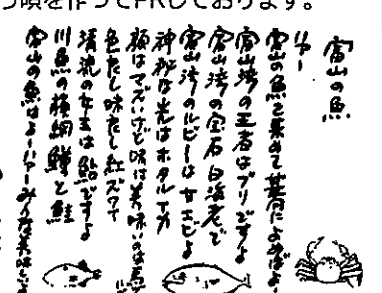 う唄を作ってPRしております。
富山の魚
富山の魚を集めて
富山湾の王者はブリですよ
富山湾の宝石白海老で
富山湾のルビーは甘エビよ
神秘な光はホタルイカ
顔はマズいけど味は美味いのは
色だし味だし紅ズワイ
清流の女王は鮎ですよ
川魚の横綱鱒と鮭
富山の魚はよーいやーみんな美味しい